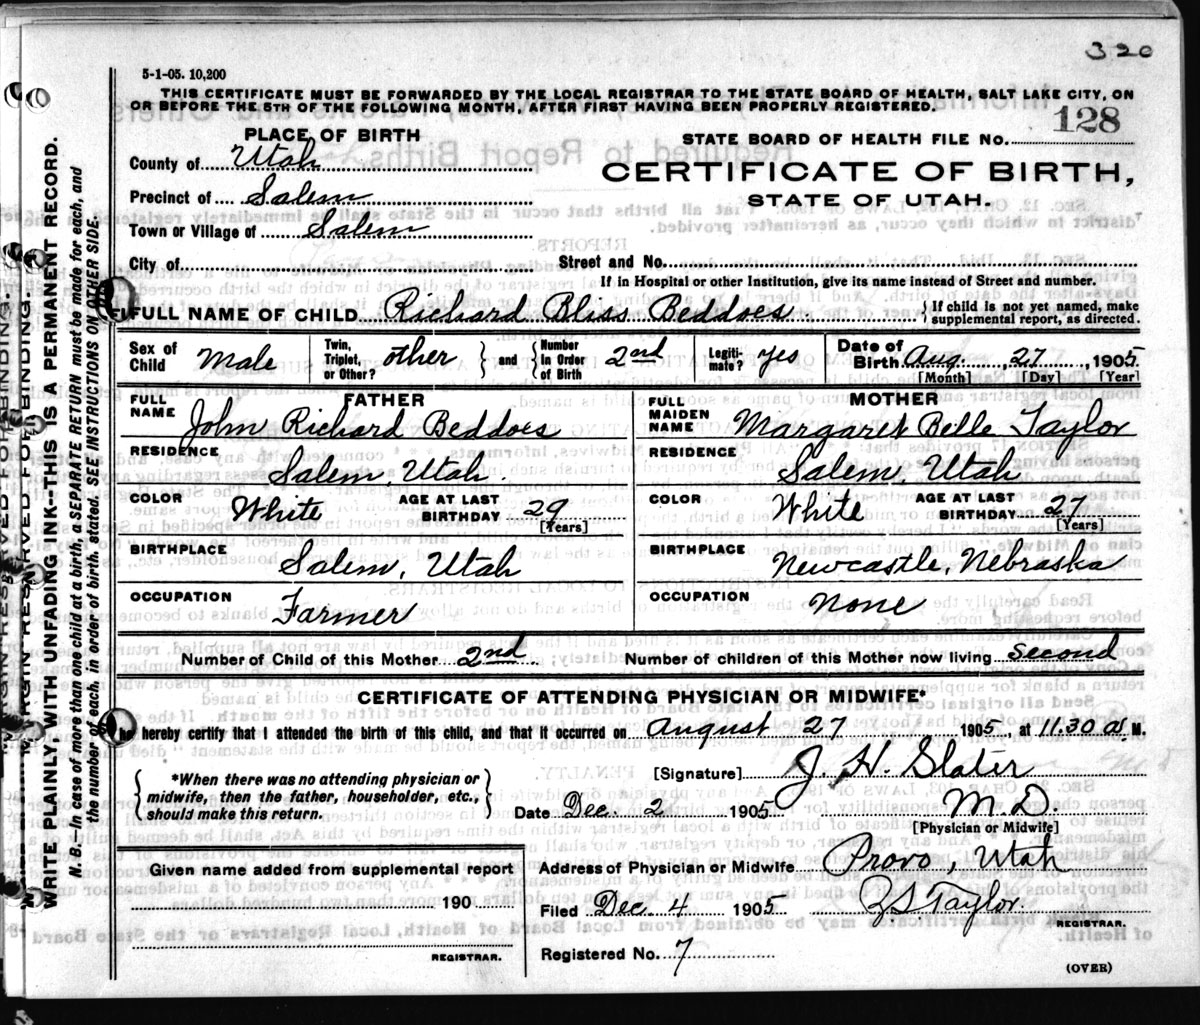 320
5-1-05. 10,200
THIS CERTIFICATE MUST BE FORWARDED BY THE LOCAL REGISTRAR TO THE STATE BOARD OF HEALTH, SALT LAKE CITY, ON
OR BEFORE THE 5TH OF THE FOLLOWING MONTH, AFTER FIRST HAVING BEEN PROPERLY REGISTERED.
PLACE OF BIRTH
STATE BOARD OF HEALTH FILE NO. 128
County of Utah
CERTIFICATE OF BIRTH,
Precinct of Salem
STATE OF UTAH.
Town or Village of Salem
City of
Street and No.
If in Hospital or other Institution, give its name instead of Street and number.
FULL NAME OF CHILD Richard Bliss Beddoes { If child is not yet named, make supplemental report, as directed.
Sex of Child Male Twin, Triplet, or Other? other } and { Number in Order of Birth 2nd Legitimate? yes Date of Birth Aug. 27, 1905
[Month] [Day] [Year]
FATHER
MOTHER
FULL NAME John Richard Beddoes
FULL MAIDEN NAME Margaret Belle Taylor
RESIDENCE Salem, Utah.
RESIDENCE Salem, Utah
COLOR White AGE AT LAST BIRTHDAY 29 [Years]
COLOR White AGE AT LAST BIRTHDAY 27 [Years]
BIRTHPLACE Salem, Utah
BIRTHPLACE Newcastle, Nebraska
OCCUPATION Farmer
OCCUPATION None
Number of Child of this Mother 2nd Number of children of this Mother now living second
CERTIFICATE OF ATTENDING PHYSICIAN OR MIDWIFE*
I hereby certify that I attended the birth of this child, and that it occurred on August 27 1905, at 11.30 a. M.
{ *When there was no attending physician or
midwife, then the father, householder, etc.,
should make this return. }
[Signature] J. H. Slater
Date Dec. 2 1905 M.D.
[Physician or Midwife]
Given name added from supplemental report
190
REGISTRAR.
Address of Physician or Midwife Provo, Utah
Filed Dec 4 1905 Taylor.
REGISTRAR.
Registered No. 7
(OVER)
WRITE PLAINLY, WITH UNFADING INK--THIS IS A PERMANENT RECORD.
N. B.—In case of more than one child at a birth, a SEPARATE RETURN must be made for each, and
the number of each, in order of birth, stated. SEE INSTRUCTIONS ON OTHER SIDE.